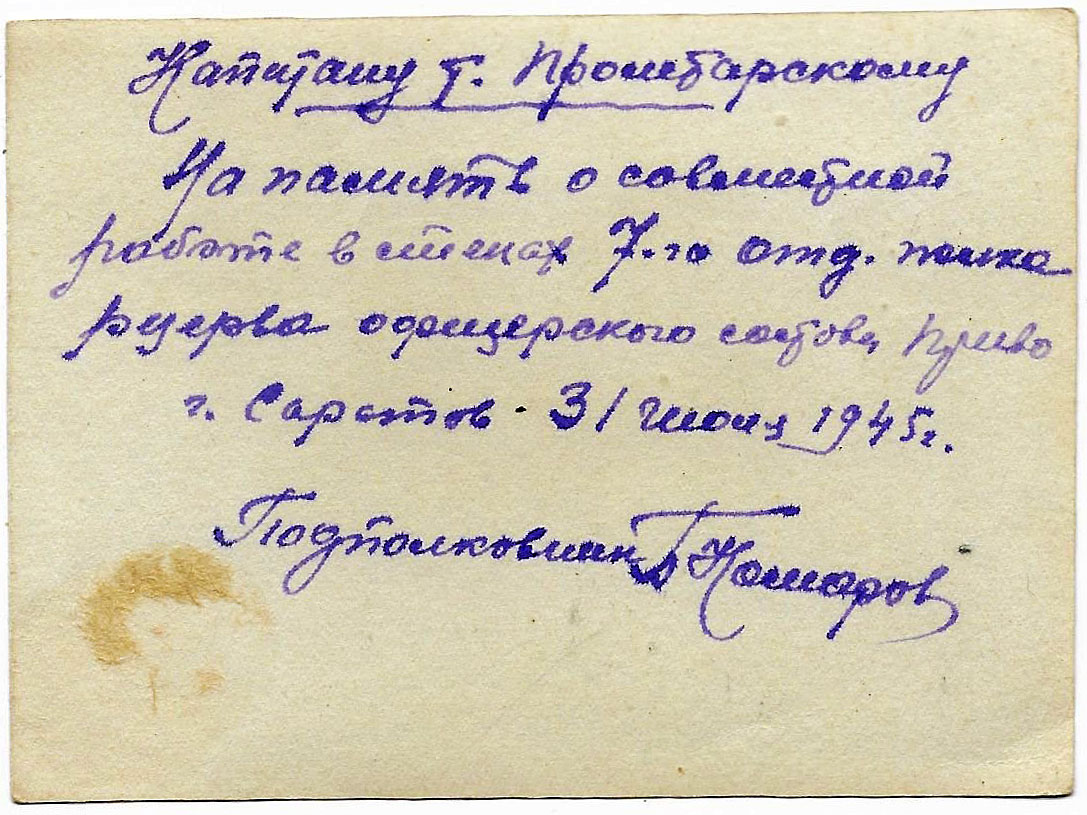 Капитану т. Пролетарскому
На память о совместной
работе в стенах 7-го отд. полка
резерва офицерского состава ПриВО
г. Саратов. 31 июля 1945 г.
Подполковник Комаров